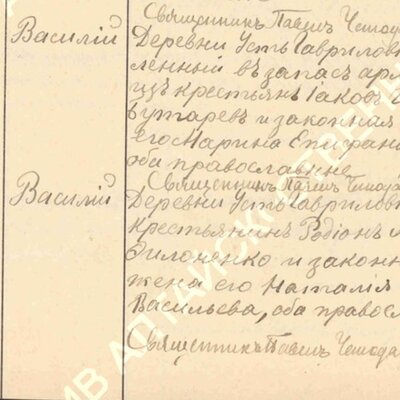 Священникъ Павелъ Чемода
Василій
Деревни Усть Гавриловк
ленный въ запасъ арм
изъ крестьянъ Іаковъ
Бутаревъ и законная
его Марина Епифан
оба православные
Священникъ Павелъ Чемода
Василій
Деревни Усть Гавриловк
крестьянинъ Родіонъ
и законн
жена его Наталія
Васильева, оба правосл
Священникъ Павелъ Чемода